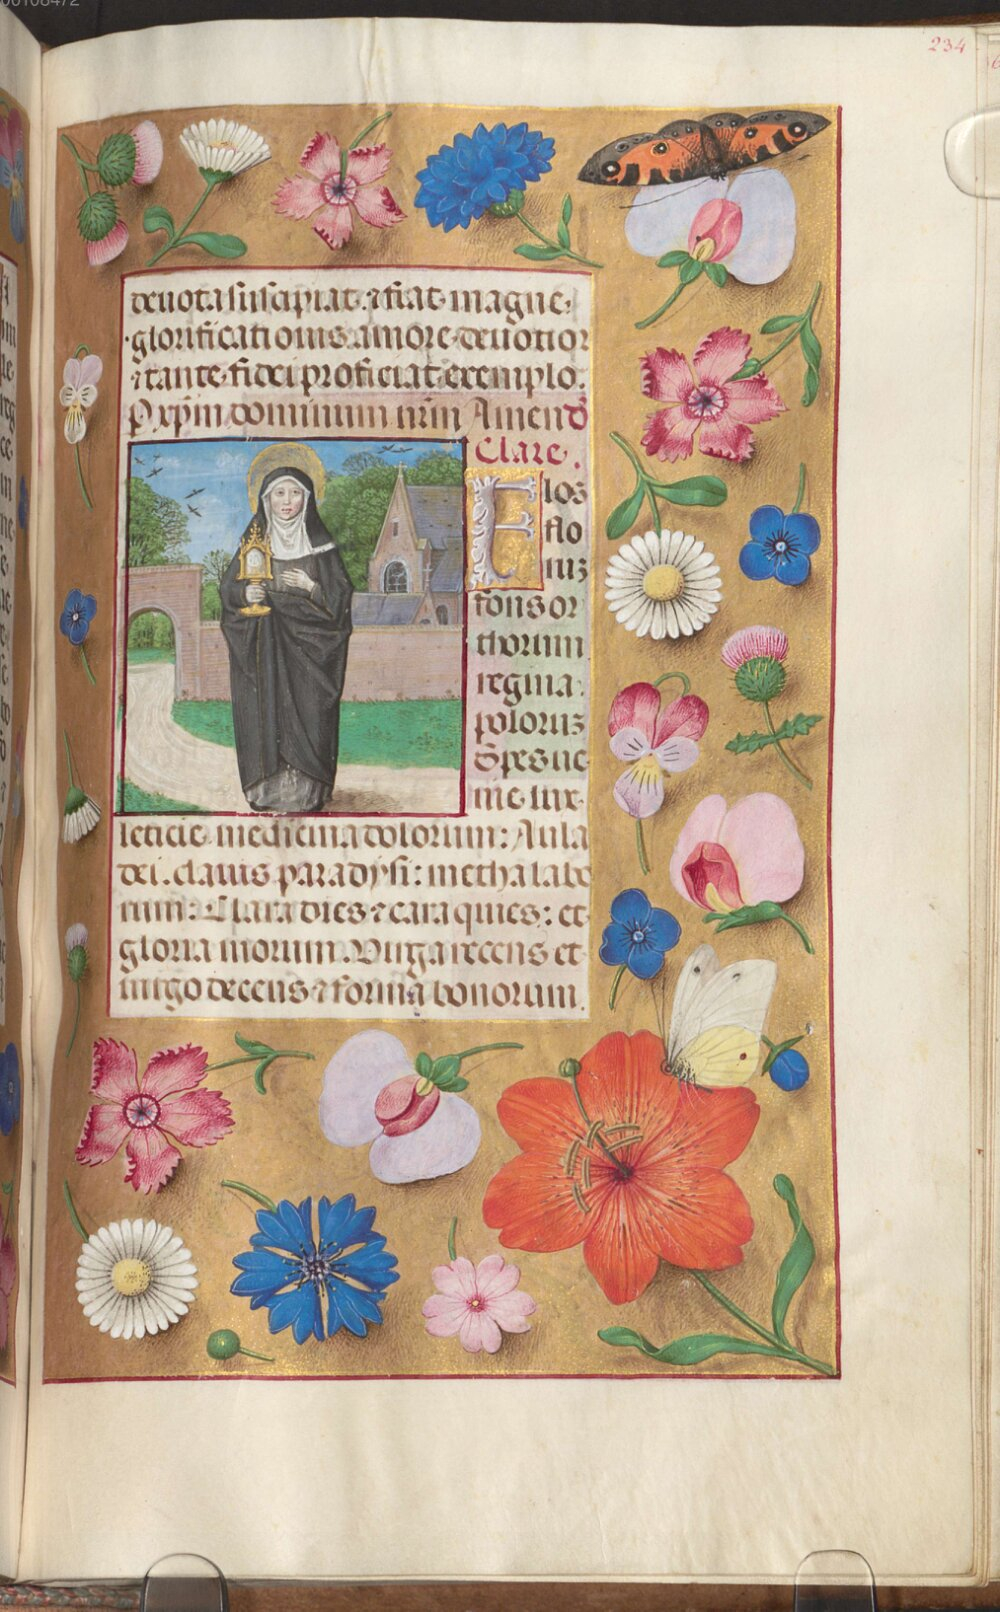 00108472
234
deuota suscipiat. ⁊ fiat magne
glorificationis amore deuotior
⁊ tante fidei proficiat exemplo.
P xp̄m dominum nr̄m Amen Dͤ
Clare.
Elos
flo
rūꝫ
fons or
thorum
regina
polorūꝫ
Spes ue
nie lux
leticie medicina dolorum: Aula
dei. clauis paradysi: metha labo
rum: Clara dies ⁊ cara quies: et
gloria morum. Uirga recens et
uirgo decens ⁊ forma bonorum.